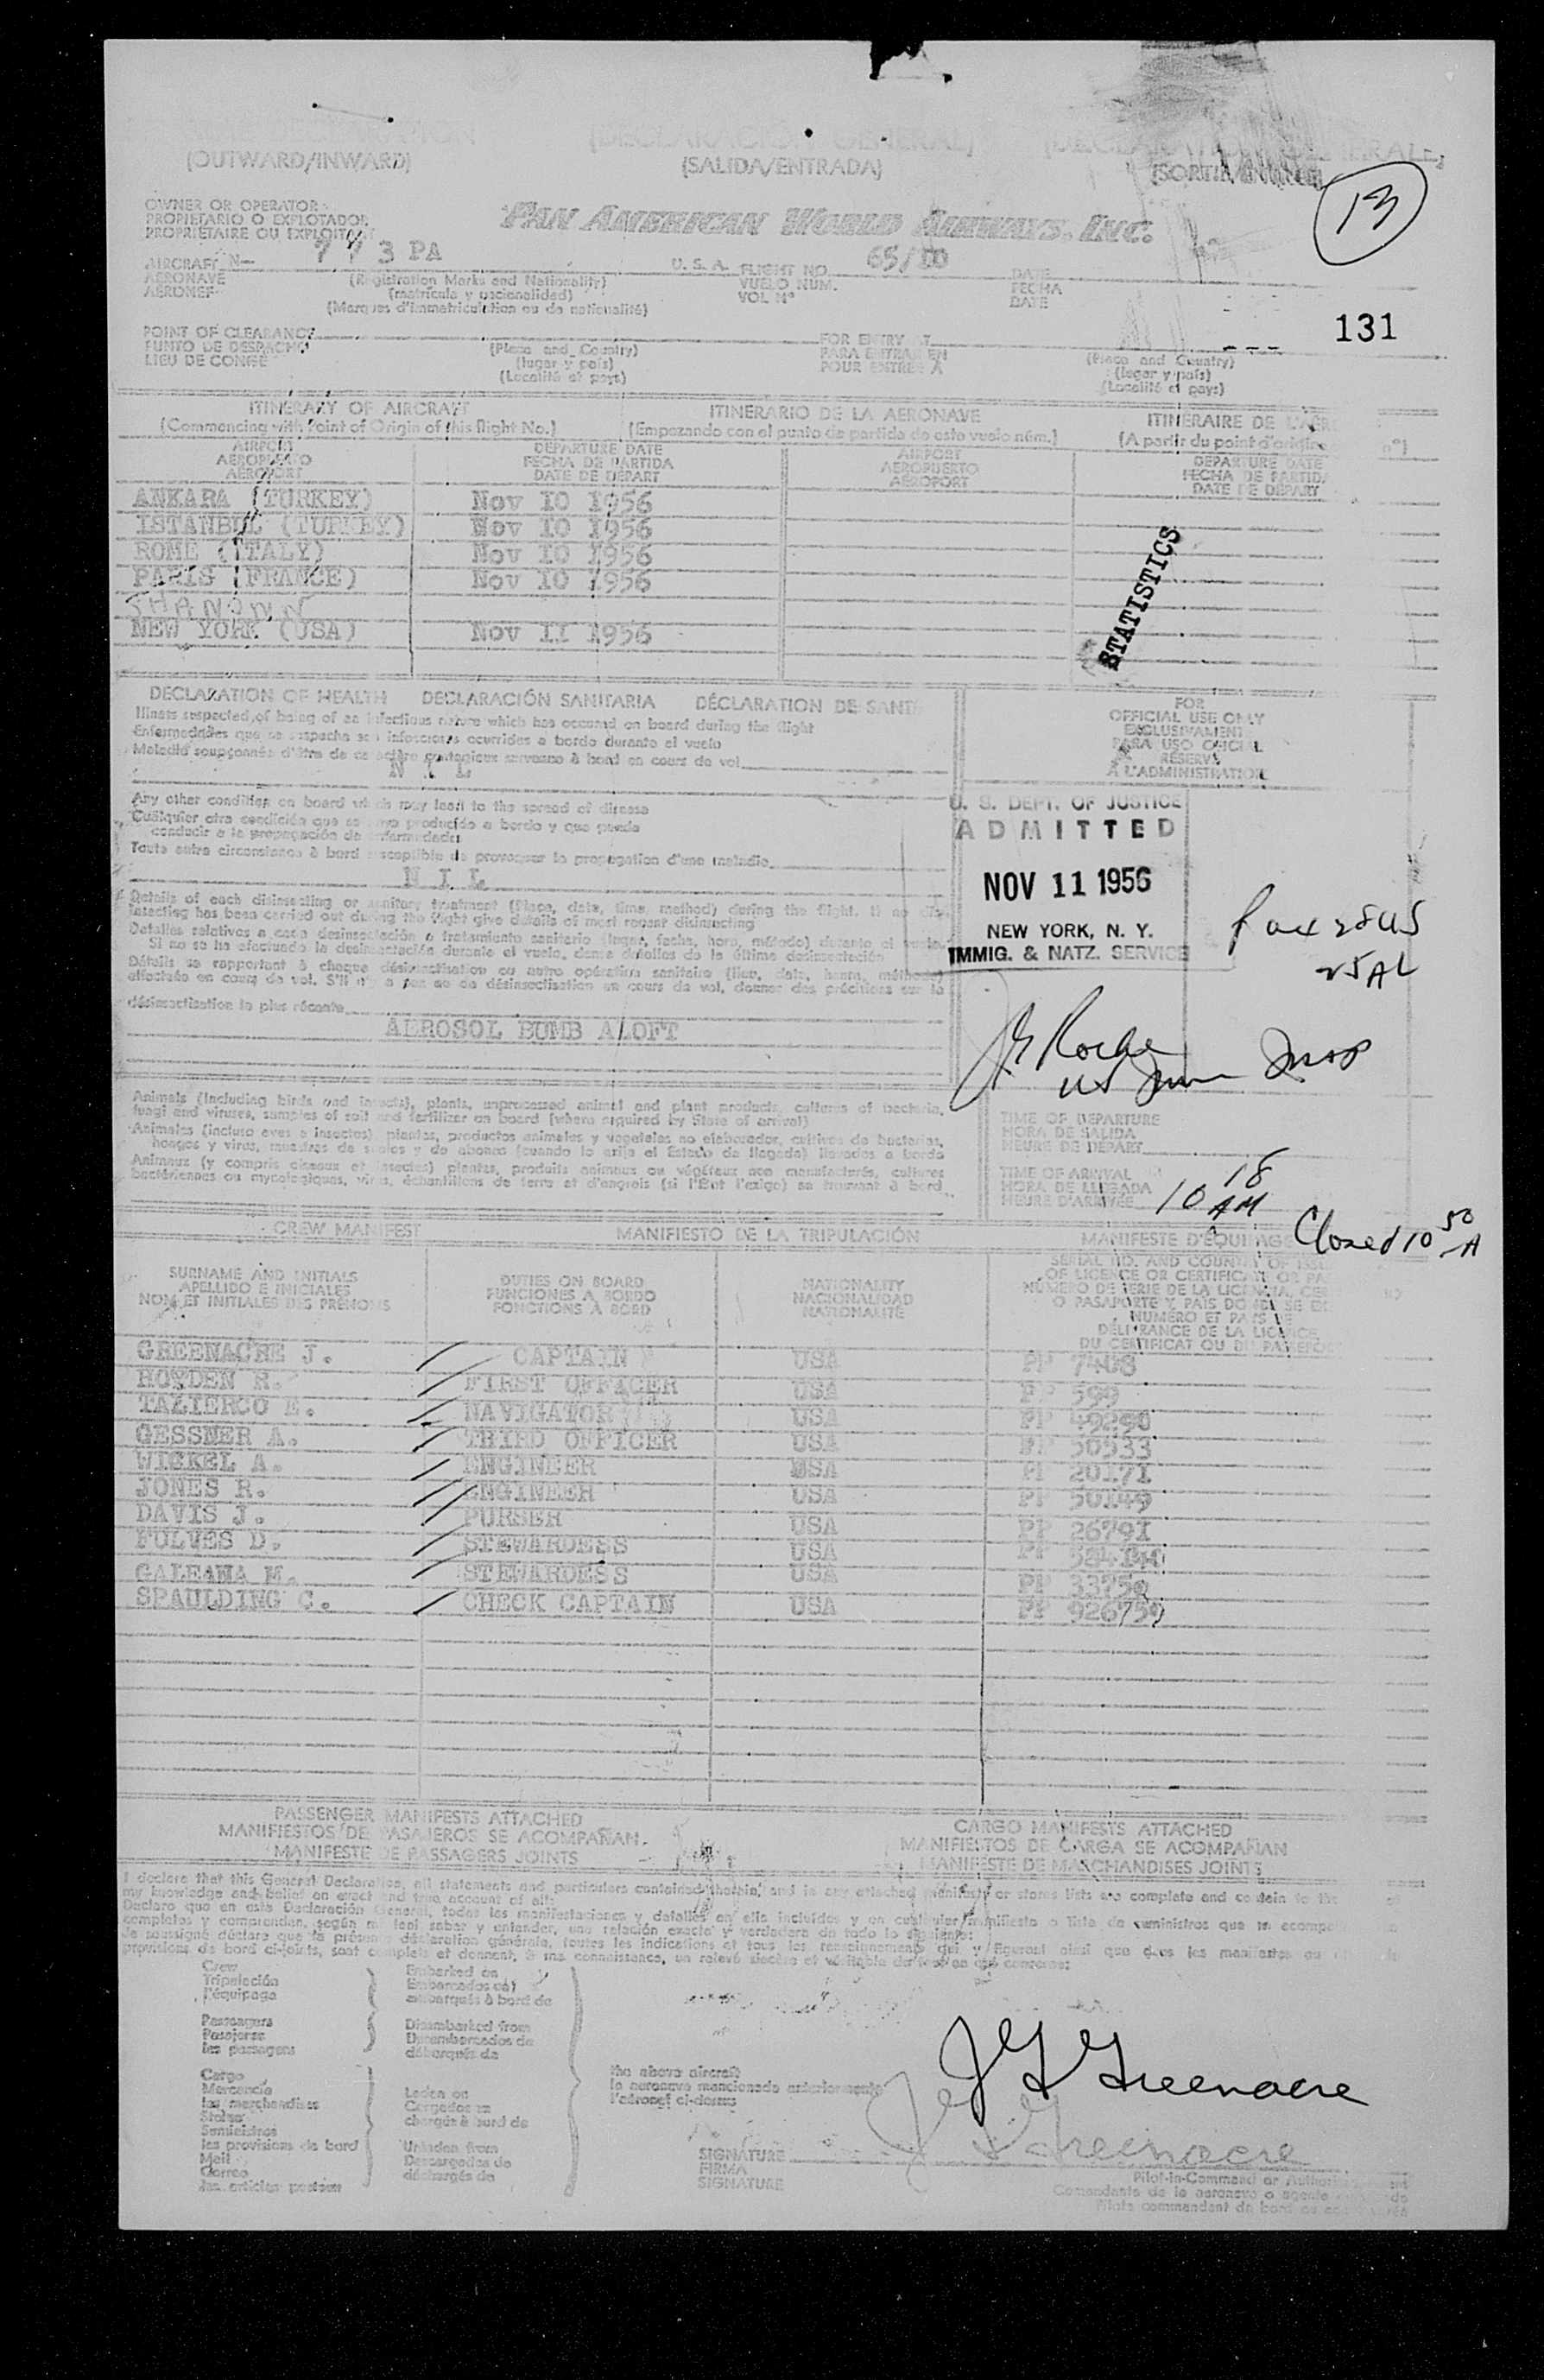 (DECLARACIÓN GENERAL)
(OUTWARD/INWARD) (SALIDA/ENTRADA)
13
OWNER OR OPERATOR
PROPIETARIO O EXPLOTADOR
PROPRIETAIRE OU EXPLOITANT
PAN AMERICAN WORLD AIRWAYS, INC.
AIRCRAFT N- 773 PA U. S. A. FLIGHT NO. 65/10 DATE
AERONAVE (Registration Marks and Nationality) VUELO NUM. FECHA
AERONEF (matrícula y nacionalidad) VOL Nº DATE
(Marques d'immatriculation ou de nationalité)
131
POINT OF CLEARANCE FOR ENTRY AT
PUNTO DE DESPACHO (Place and Country) PARA ENTRAR EN (Place and Country)
LIEU DE CONGÉ (lugar y país) POUR ENTRÉE A (lugar y país)
(Localité et pays) (Localité et pays)
ITINERARY OF AIRCRAFT ITINERARIO DE LA AERONAVE ITINERAIRE DE L'AÉRO
(Commencing with Point of Origin of this flight No.) (Empezando con el punto de partida de este vuelo núm.) (A partir du point d'origine nº)
AIRPORT DEPARTURE DATE AIRPORT DEPARTURE DATE
AEROPUERTO FECHA DE PARTIDA AEROPUERTO FECHA DE PARTIDA
AÉROPORT DATE DE DÉPART AÉROPORT DATE DE DÉPART
ANKARA (TURKEY) Nov 10 1956
ISTANBUL (TURKEY) Nov 10 1956
ROME (ITALY) Nov 10 1956
PARIS (FRANCE) Nov 10 1956
SHANONN
NEW YORK (USA) Nov 11 1956
STATISTICS
DECLARATION OF HEALTH DECLARACIÓN SANITARIA DÉCLARATION DE SANTÉ
Illness suspected of being of an infectious nature which has occurred on board during the flight
Enfermedades que se sospecha son infecciosas ocurridas a bordo durante el vuelo
Maladie soupçonnée d'être de caractère contagieux survenue à bord en cours de vol
N I L
FOR
OFFICIAL USE ONLY
EXCLUSIVAMENT
PARA USO OFICIAL
RÉSERVÉ
À L'ADMINISTRATION
Any other condition on board which may lead to the spread of disease
Cualquier otra condición que se haya producido a bordo y que pueda
conducir a la propagación de enfermedades
Toute autre circonstance à bord susceptible de provoquer la propagation d'une maladie
N I L
U. S. DEPT. OF JUSTICE
ADMITTED
NOV 11 1956
NEW YORK, N. Y.
IMMIG. & NATZ. SERVICE
Details of each disinsecting or sanitary treatment (Place, date, time, method) during the flight. If no dis-
insecting has been carried out during the flight give details of most recent disinsecting
Detalles relativos a cada desinsectación o tratamiento sanitario (lugar, fecha, hora, método) durante el vuelo.
Si no se ha efectuado la desinsectación durante el vuelo, dense detalles de la última desinsectación
Détails se rapportant à chaque désinsectisation ou autre opération sanitaire (lieu, date, heure, méthode)
effectuée en cours de vol. S'il n'y a pas eu de désinsectisation en cours de vol, donner des précisions sur la
désinsectisation la plus récente
AEROSOL BUMB ALOFT
Animals (including birds and insects), plants, unprocessed animal and plant products, cultures of bacteria,
fungi and viruses, samples of soil and fertilizer on board (where required by State of arrival)
Animales (incluso aves e insectos) plantas, productos animales y vegetales no elaborados, cultivos de bacterias,
hongos y virus, muestras de suelos y de abonos (cuando lo exija el Estado de llegada) llevados a bordo
Animaux (y compris oiseaux et insectes) plantes, produits animaux ou végétaux non manufacturés, cultures
bactériennes ou mycologiques, virus, échantillons de terre et d'engrais (si l'État l'exige) se trouvant à bord
TIME OF DEPARTURE
HORA DE SALIDA
HEURE DE DEPART
TIME OF ARRIVAL
HORA DE LLEGADA
HEURE D'ARRIVEE 10 18 AM
Closed 10 50 A
CREW MANIFEST MANIFIESTO DE LA TRIPULACIÓN MANIFESTE D'ÉQUIPAGE
SURNAME AND INITIALS DUTIES ON BOARD NATIONALITY
APELLIDO E INICIALES FUNCIONES A BORDO NACIONALIDAD
NOM ET INITIALES DES PRENOMS FONCTIONS À BORD NATIONALITÉ
SERIAL NO. AND COUNTRY OF ISSUE
OF LICENCE OR CERTIFICATE OR PA
NÚMERO DE SERIE DE LA LICENCIA, CER
O PASAPORTE Y PAÍS DONDE SE EX
NUMÉRO ET PAYS DE
DÉLIVRANCE DE LA LICENCE
DU CERTIFICAT OU DU PASSEPORT
GREENACRE J. CAPTAIN USA PP 7408
BOYDEN R. FIRST OFFICER USA PP 599
TAZIERCO E. NAVIGATOR USA PP 49290
GESSNER A. THIRD OFFICER USA PP 50533
WICKEL A. ENGINEER USA PP 20171
JONES R. ENGINEER USA PP 50149
DAVIS J. PURSER USA PP 26791
FULVES D. STEWARDESS USA PP
GALEANA M. STEWARDESS USA PP 33750
SPAULDING C. CHECK CAPTAIN USA PP 926759
PASSENGER MANIFESTS ATTACHED CARGO MANIFESTS ATTACHED
MANIFIESTOS DE PASAJEROS SE ACOMPAÑAN MANIFIESTOS DE CARGA SE ACOMPAÑAN
MANIFESTE DE PASSAGERS JOINTS MANIFESTE DE MARCHANDISES JOINTS
I declare that this General Declaration, all statements and particulars contained therein, and in any attached manifests or stores lists are complete and contain to the
my knowledge and belief an exact and true account of all:
Crew Embarked on
Tripulación Embarcados en
l'équipage embarqués à bord de
Passengers Disembarked from
Pasajeros Desembarcados de
les passagers débarqués de
Cargo
Mercancía Laden on
les marchandises Cargados en
Stores chargés à bord de
Suministros
les provisions de bord Unladen from
Mail Descargados de
Correo déchargés de
les articles postaux
the above aircraft
la aeronave mencionada anteriormente
l'aéronef ci-dessus
J G Greenacre
J G Greenacre
SIGNATURE
FIRMA
SIGNATURE
Pilot-in-Command or Authorized
Comandante de la aeronave o agente
Pilote commandant de bord ou